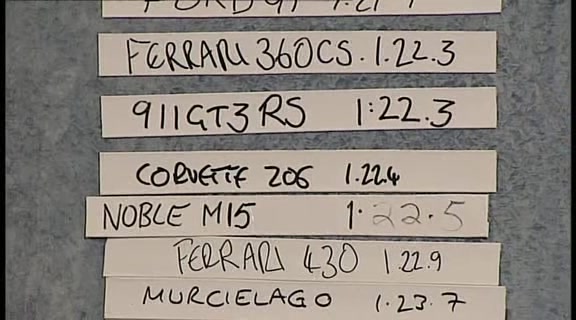 FERRARI 360CS. 1.22.3
911GT3 RS 1:22.3
CORVETTE Z06 1.22.4
NOBLE M15 1.22.5
FERRARI 430 1.22.9
MURCIELAGO 1.23.7